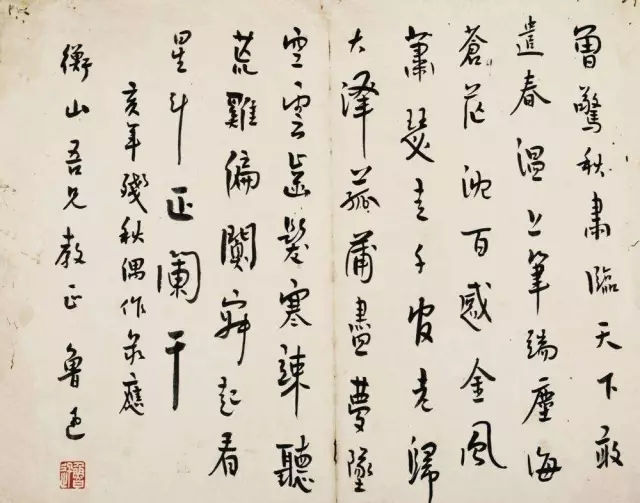 曾驚秋肅臨天下敢
遣春溫上筆端塵海
蒼茫沈百感金風
蕭瑟走千官老歸
大澤菰蒲盡夢墜
空雲齒髮寒竦聽
荒雞偏闃寂起看
星斗正闌干
亥年殘秋偶作錄應
衡山吾兄教正 魯迅